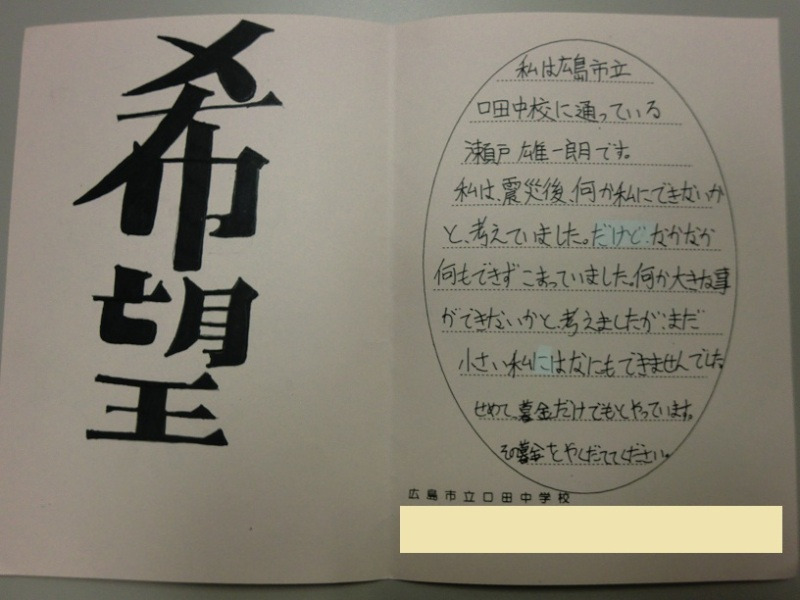 希望
私は広島市立
口田中校に通っている
瀬戸雄一朗です。
私は、震災後、何か私にできないか
と、考えていました。だけど、なかなか
何もできずこまっていました。何か大きな事
ができないかと、考えましたが、まだ
小さい私にはなにもできませんでした
せめて、募金だけでもとやっています。
その募金をやくだててください。
広島市立口田中学校